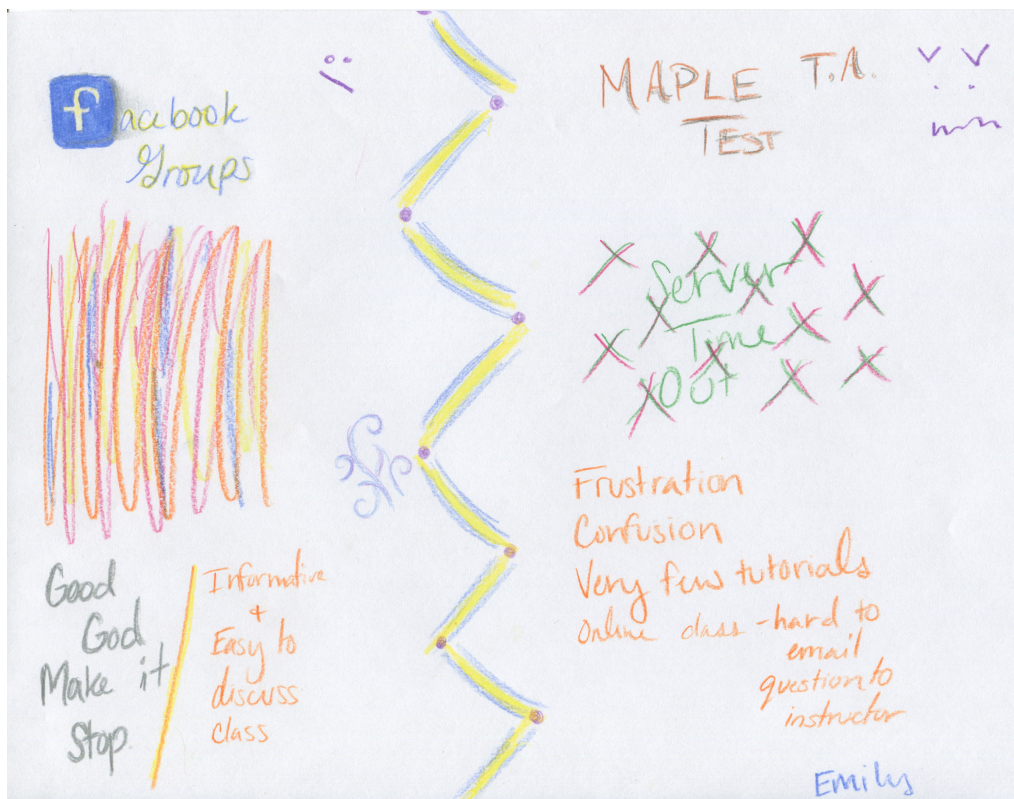 facebook
Groups
Good
God
Make it
Stop.
Informative
+
Easy to
discuss
class
MAPLE T.A.
TEST
Server
Time
Out
Frustration
Confusion
Very few tutorials
Online class - hard to
email
question to
instructor
Emily